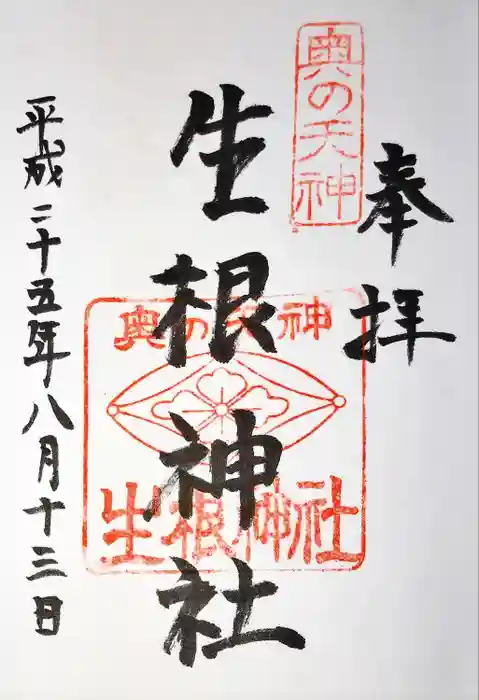 奥の天神
奉拝
生根神社
奥の天神
生根神社
平成二十五年八月十三日